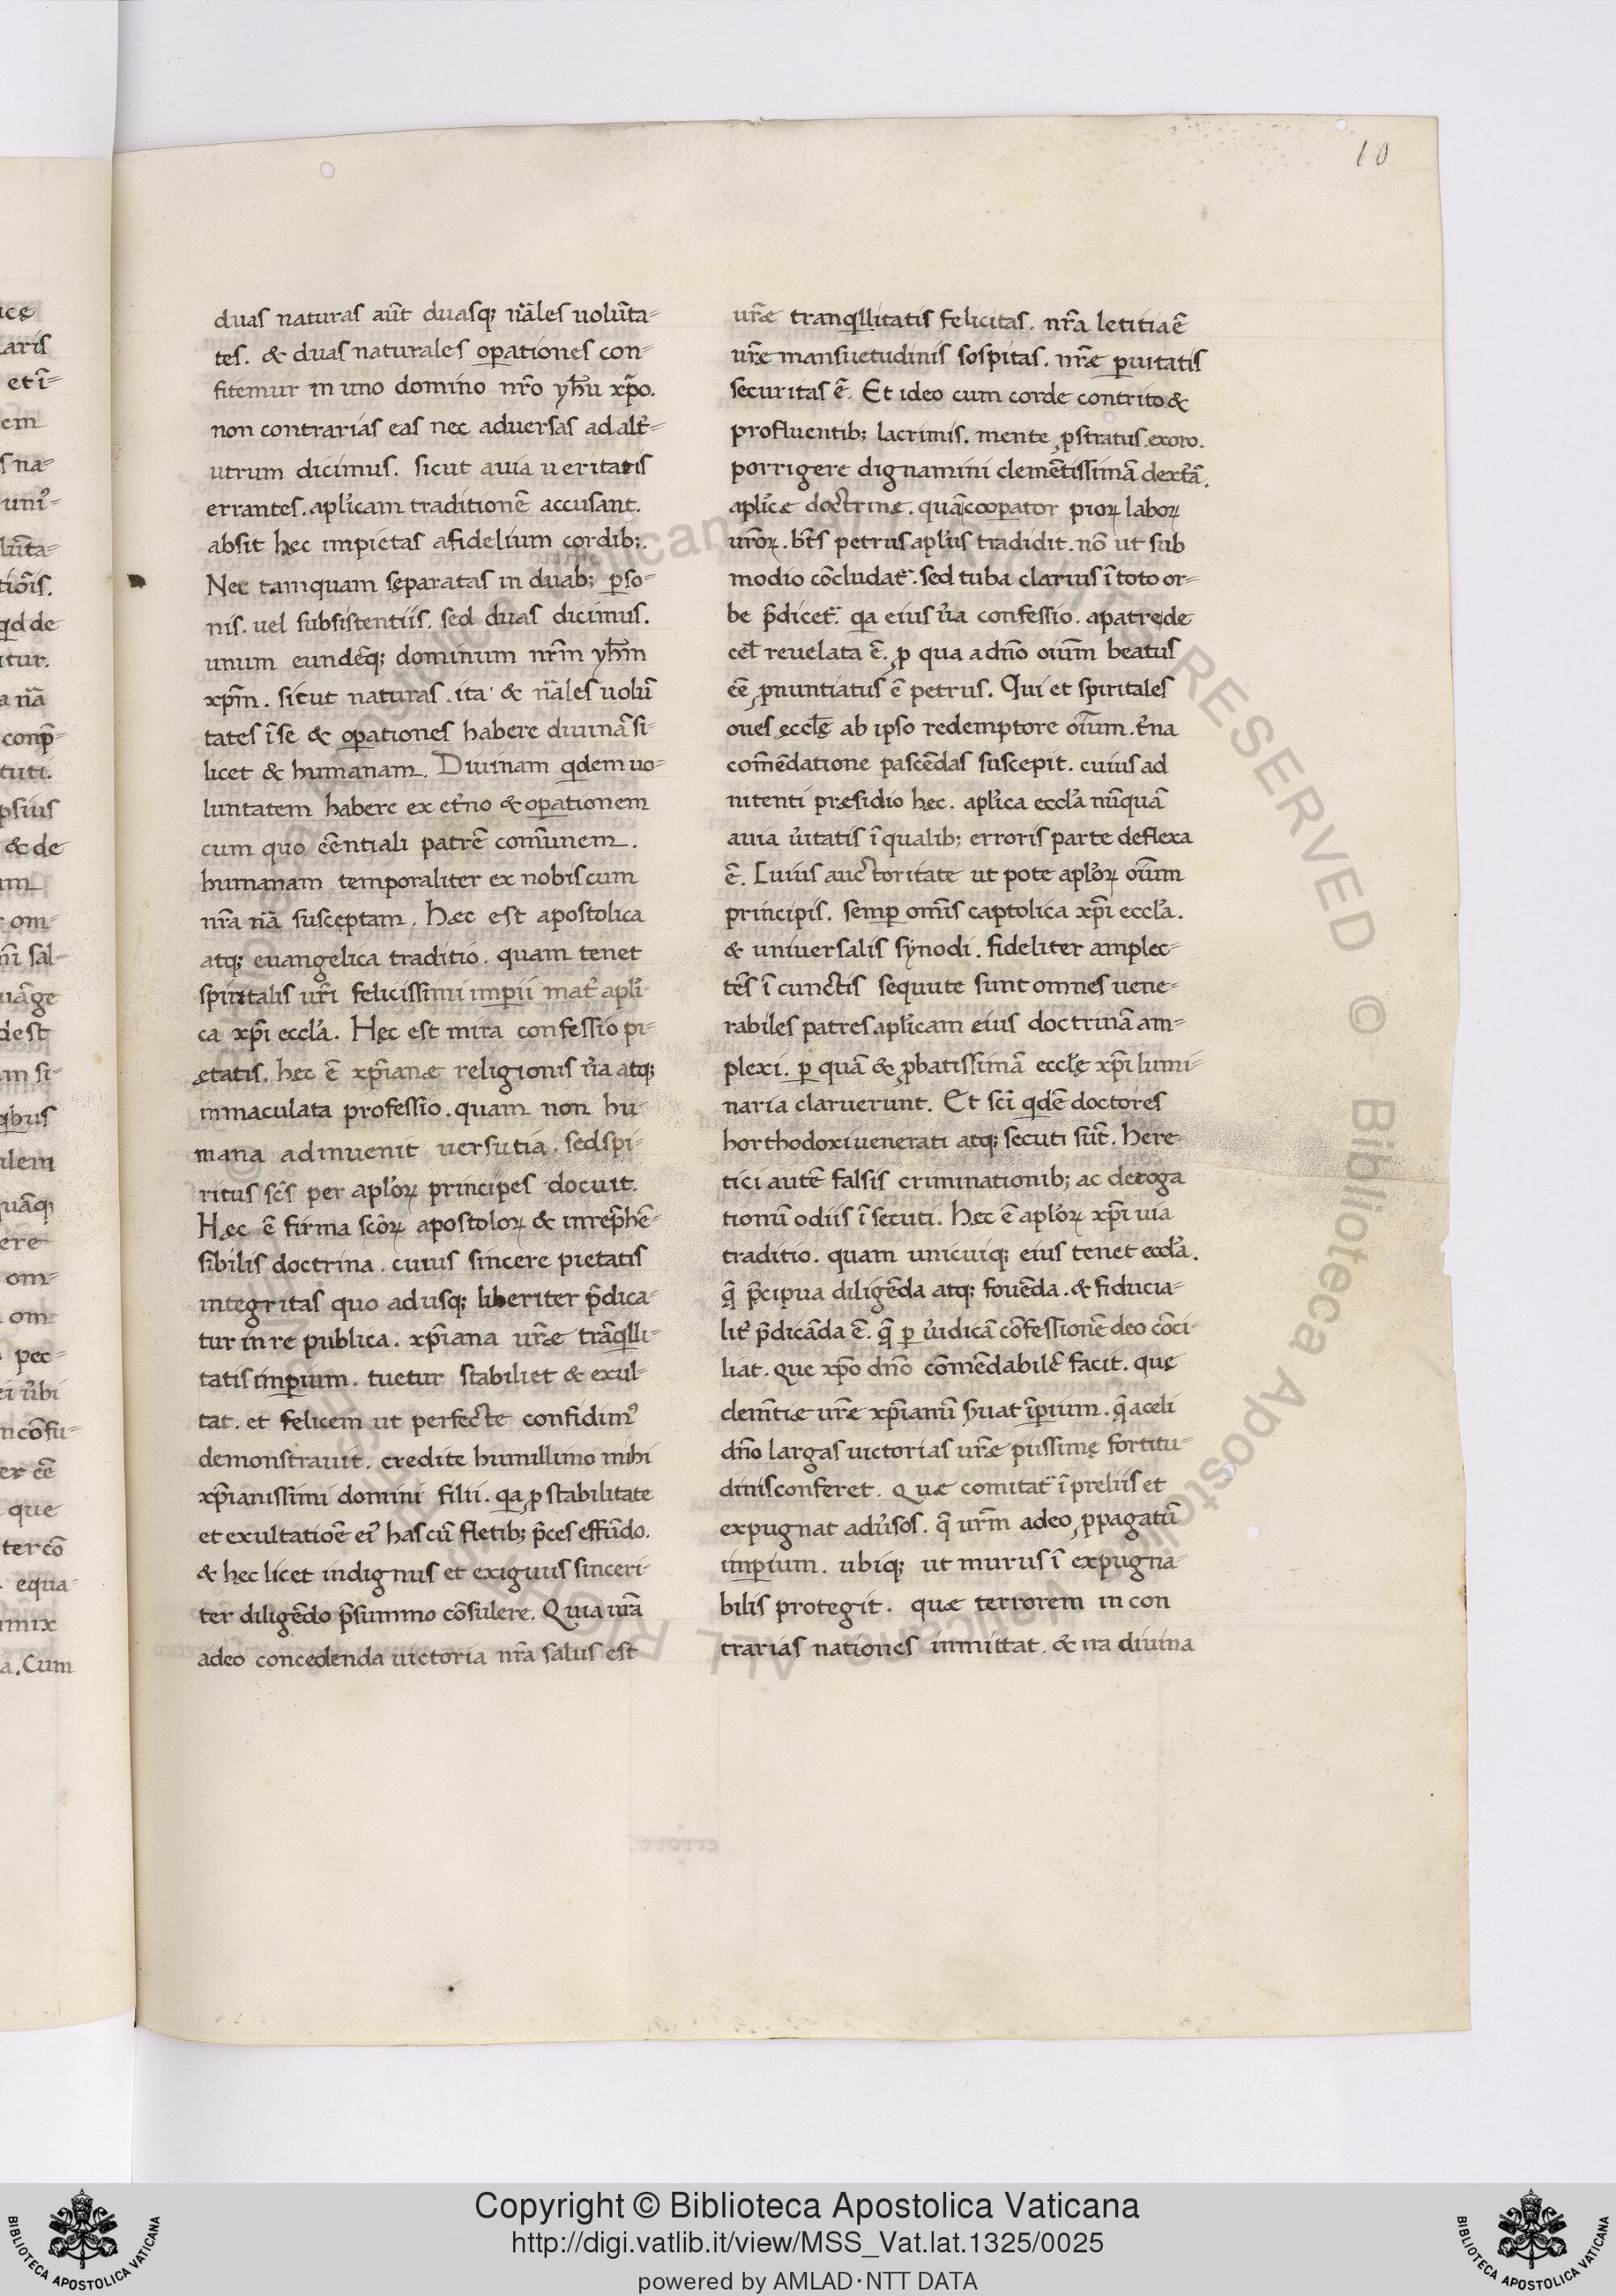 10
duas naturas aūt duasq; nāles uolūta-
tes. & duas naturales oꝑationes con-
fitemur in uno domino nr̄o yh̄u xp̄o.
non contrarias eas nec aduersas ad alt̄-
utrum dicimus. sicut auia ueritatis
errantes. apl̓icam traditionē accusant.
absit hec impietas afidelium cordib;.
Nec tamquam sęparatas in duab; ꝑso-
nis. uel subsistentiis. sed duas dicimus.
unum eundēq; dominum nr̄m yh̄m
xp̄m. sicut naturas. ita & nāles uolū
tates ī se & oꝑationes habere diuinā si-
licet & humanam. Diuinam qdem uo-
luntatem habere ex et̄no & oꝑationem
cum quo eēntiali patrē com̄unem.
humanam temporaliter ex nobiscum
nr̄a nā susceptam. Hæc est apostolica
atq; euangelica traditio. quam tenet
spiritalis ur̄i felicissimi imꝑii mat̄ apl̓i-
ca xp̄i eccl̓a. Hęc est mira confessio pi-
ętatis. hec ē xp̄ianæ religionis ūa atq;
inmaculata professio. quam non hu-
mana adinuenit uersutia. sed spi-
ritus sc̄s per apl̓oꝝ principes docuit.
Hæc ē firma scōꝝ apostoloꝝ & inrep̄hē-
sibilis doctrina. cuius sincere pietatis
integritas quo adusq; liberiter p̄dica-
tur in re publica. xp̄iana ur̄æ trāqlli-
tatis imꝑium. tuetur stabiliet & exul-
tat. et felicem ut perfecte confidim᷒
demonstrauit. credite humillimo mihi
xp̄ianissimi domini filii. qa ꝓ stabilitate
et exultatiōe ei᷒ has cū fletib; p̄ces effūdo.
& hec licet indignus et exiguus sinceri-
ter diligēdo p̄summo cōsulere. Quia ur̄a
adeo concedenda uictoria nr̄a salus est
ur̄æ tranqllitatis felicitas. nr̄a letitia ē
ur̄e mansuetudinis sospitas. nr̄æ ꝑuitatis
securitas ē. Et ideo cum corde contrito &
profluentib; lacrimis. mente ꝓstratus exoro.
porrigere dignamini clemētissimā dext̄ā.
apl̓icæ doctrinę. quā cooꝑator pioꝝ laboꝝ
ur̄oꝝ. bt̄s petrus apl̓us tradidit. nō ut sub
modio cōcludat᷑. sed tuba clarius ī toto or-
be p̄dicet᷑. qa eius ūa confessio. a patre de
cel̄ reuelata ē. ꝓ qua a dn̄o oiūm beatus
eē ꝓnuntiatus ē petrus. Qui et spiritales
oues eccl̄ę ab ipso redemptore oīum. t̄na
com̄ēdatione pascēdas suscepit. cuius ad
nitenti præsidio hęc. apl̓ica eccl̓a nūquā
auia ūitatis ī qualib; erroris parte deflexa
ē. Cuius auctoritate ut pote apl̓oꝝ oīum
principis. semꝑ omīs captolica xp̄i eccl̓a.
& uniuersalis synodi. fideliter amplec-
tēs ī cunctis sequute sunt omnes uene-
rabiles patres apl̓icam eius doctrinā am-
plexi. ꝑ quā & ꝓbatissimā eccl̄ę xp̄i lumi-
naria claruerunt. Et sc̄i qdē doctores
horthodoxi uenerati atq; secuti sūt. here-
tici autē falsis criminationib; ac deroga
tionū odiis īsecuti. Hæc ē apl̓oꝝ xp̄i uia
traditio. quam unicuiq; eius tenet eccl̓a.
q̄ p̄cipua diligēda atq; fouēda. & fiducia-
lit̄ p̄dicāda ē. q̄ ꝑ ūidicā cōfessionē deo cōci-
liat. que xp̄o dn̄o cōmēdabilē facit. quę
clem̄tiæ ur̄e xp̄ianū s̓uat īꝑium. q̄ a celi
dn̄o largas uictorias ur̄æ piissimę fortitu-
dinis conferet. Quæ comitat᷑ ī preliis et
expugnat adūsos. q̄ ur̄m adeo ꝓpagatū
imꝑium. ubiq; ut murus ī expugna-
bilis protegit. quæ terrorem in con
trarias nationes inmittat. & ira diuina
Copyright © Biblioteca Apostolica Vaticana
http://digi.vatlib.it/view/MSS_Vat.lat.1325/0025
powered by AMLAD·NTT DATA